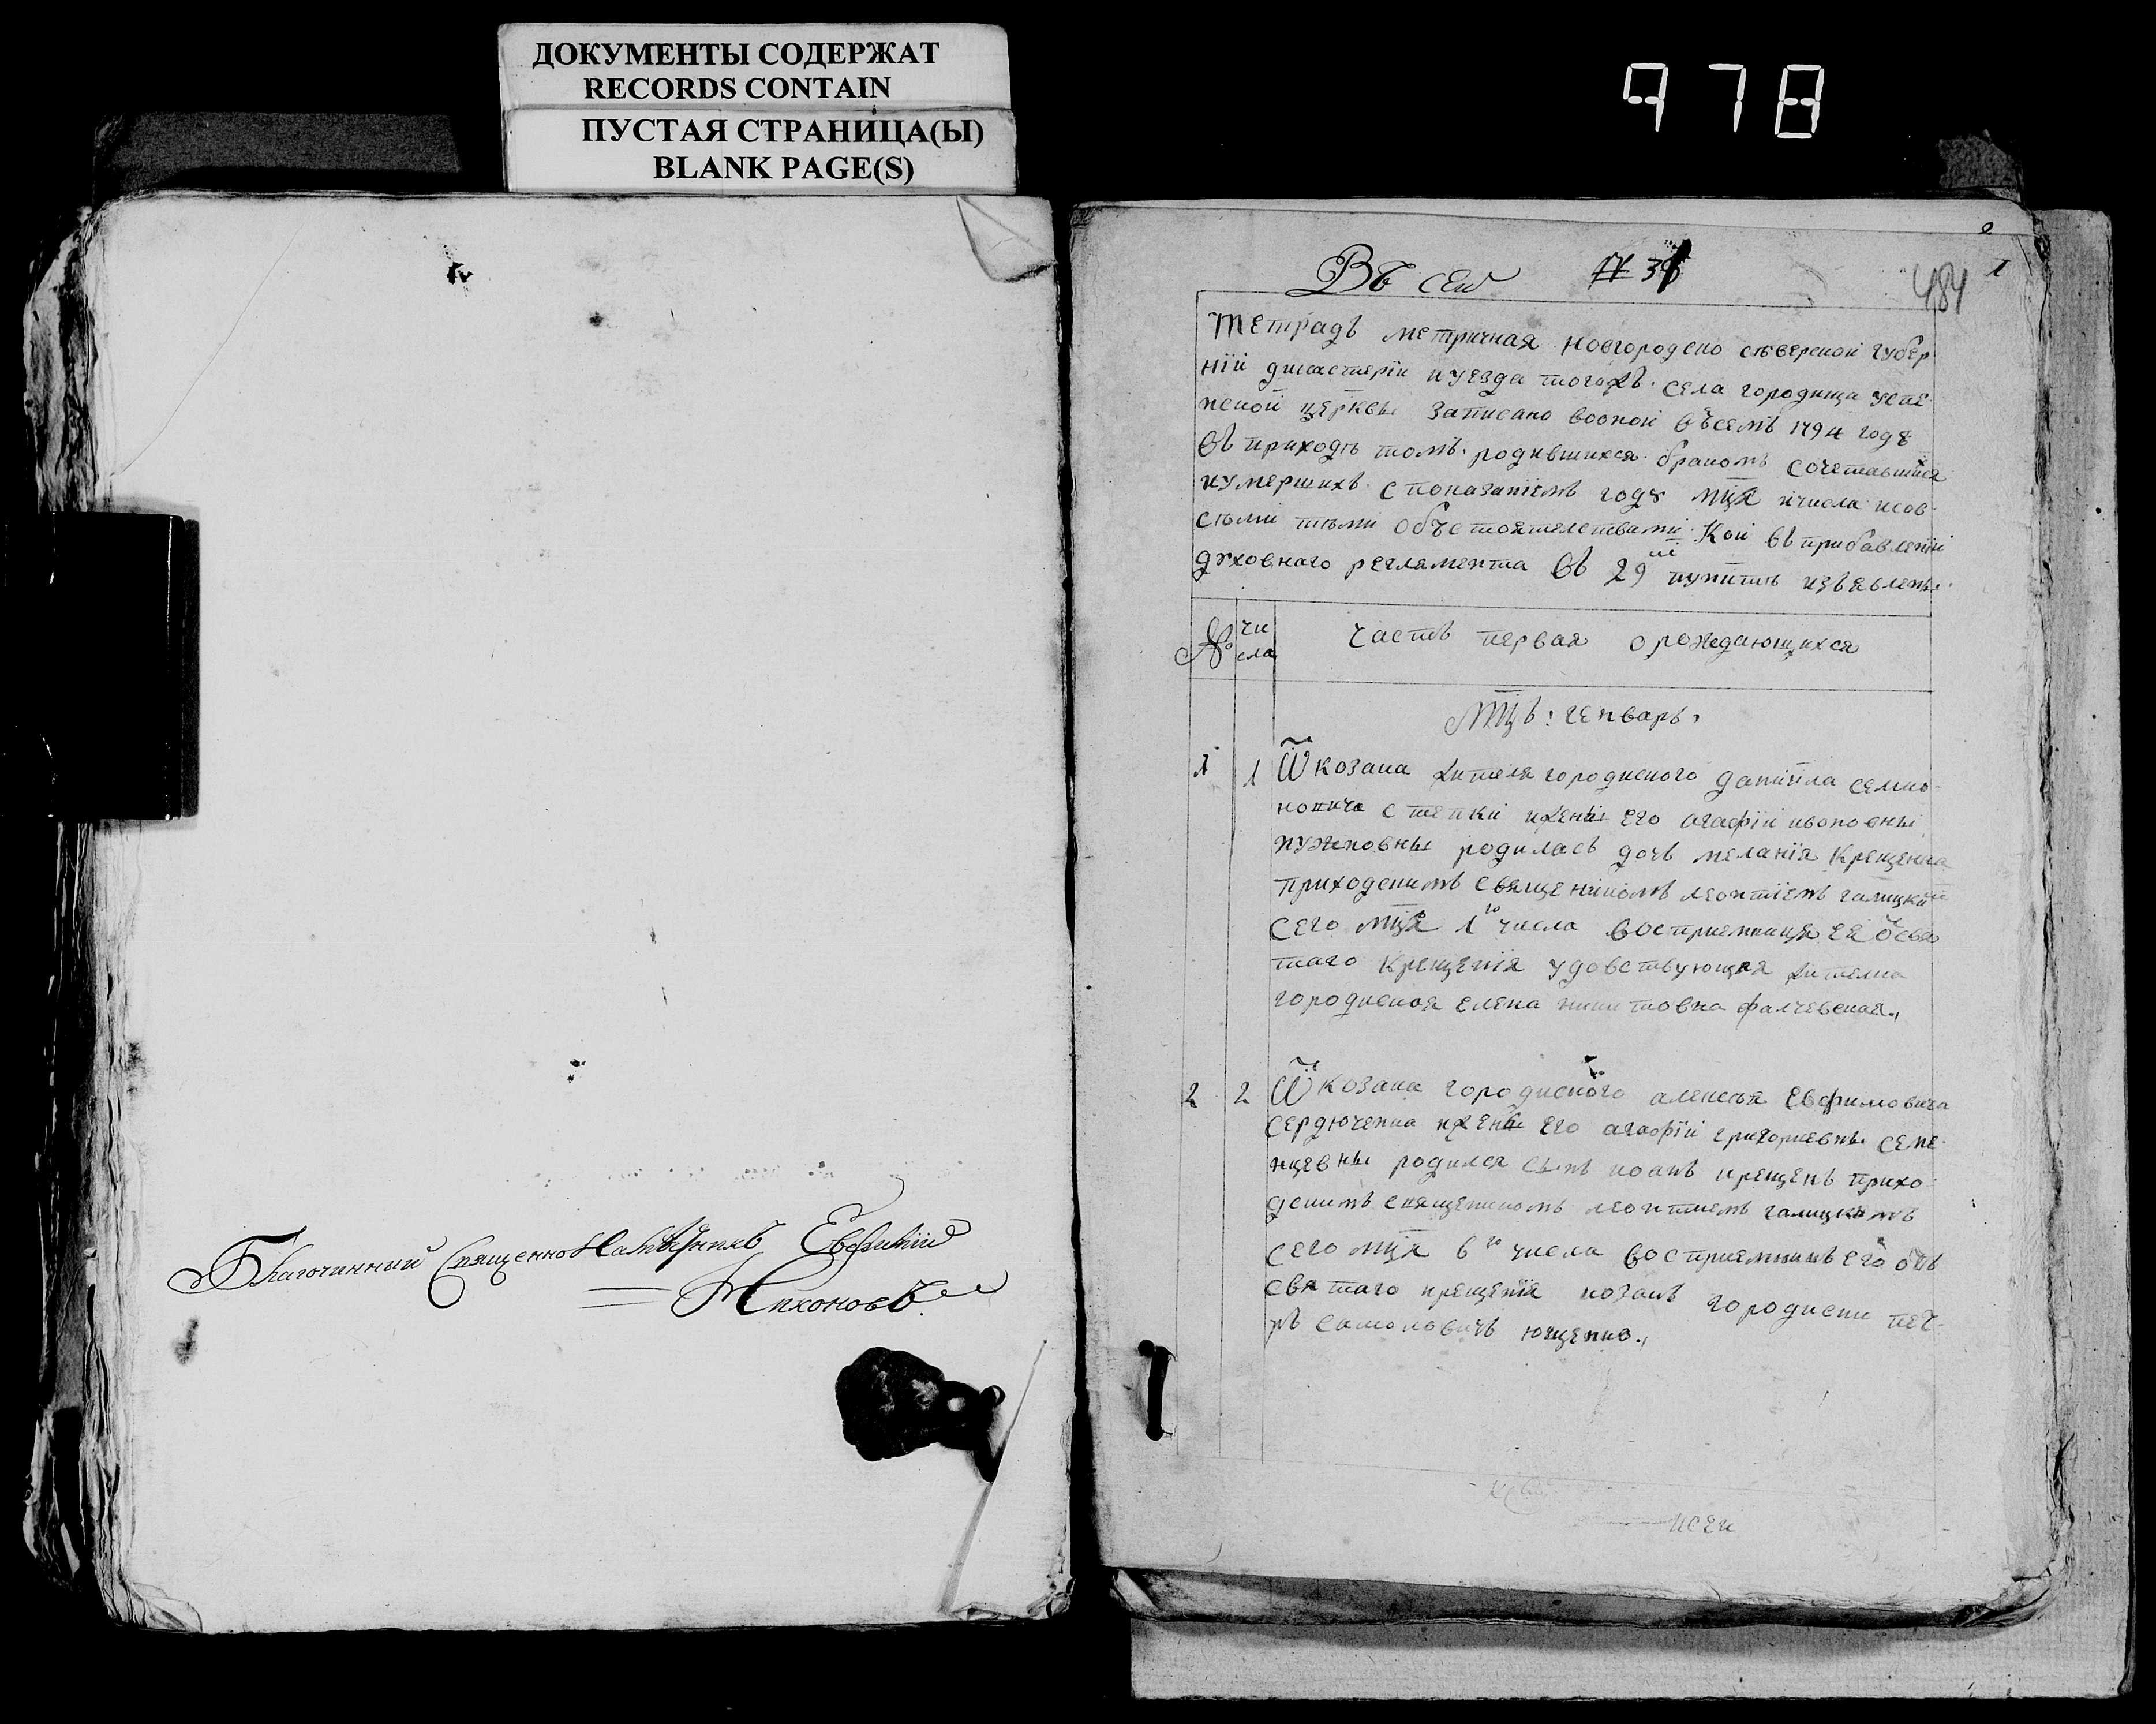 ДОКУМЕНТЫ СОДЕРЖАТ
RECORDS CONTAIN
ПУСТАЯ СТРАНИЦА(Ы)
BLANK PAGE(S)
978
Благочинний Священно Евфимій
Тихоновъ
2
1
Въ сей № 38
484
тетрадь метричная новгородско сѣверской губер
нїи уезда тогожъ села городища успе
нской церквы записано воной въсемъ 1794 годꙋ
въ приходѣ томъ родившихся бракомъ сочетавшихся
иумершихъ споказанїемъ годꙋ мц҃а ичисла исов
сѣми тѣми обстоятелствами кои въприбавленїи
духовнаго регламента въ 29 пунктѣ изъявлены
№
чи
сла
часть первая орождающихся
мц҃ъ: генварь.
1 1 Ѿ козака жителя городиского данїила семио-
новича степки ижены его агафїи
родилась дочь меланїя крещенна
приходскимъ священникомъ леонтїемъ галицким
сего мц҃а 1го числа восприемница ея ѿ свя
таго крещенїя удовствующая жителка
городиская елена никитовна фалчевская.,
2 2 Ѿ козака городиского алексѣя евфимовича
сердюченка ижены его агафїи григориевны семе-
нцевны родился сынъ иоанъ крещенъ прихо
дскимъ священикомъ леонтиемъ галицкимъ
сего мц҃а 6го числа восприемникъ его отъ
святаго крещенїя козакъ городиски пет-
ръ самоиловичъ ющенко.,